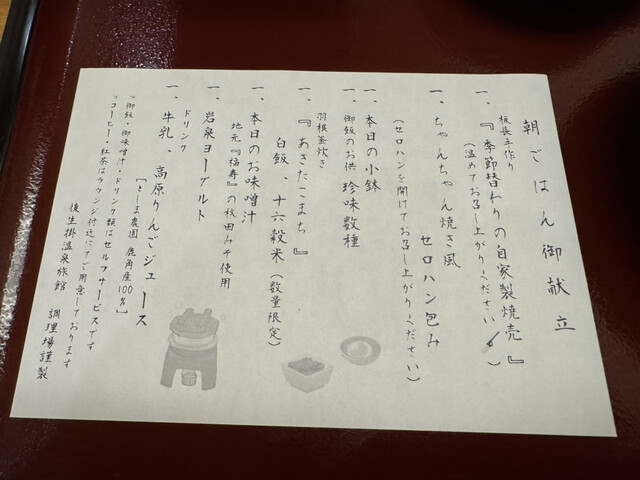 朝ごはん御献立
板長手作り
一、『季節替わりの自家製焼売』
（温めてお召し上がりください）
一、ちゃんちゃん焼き風 セロハン包み
（セロハンを開けてお召し上がりください）
一、本日の小鉢
一、御飯のお供 珍味数種
羽根釜炊き
一、『あきたこまち』
白飯、十六穀米（数量限定）
一、本日のお味噌汁
地元『福寿』の秋田みそ使用
一、岩泉ヨーグルト
ドリンク
一、牛乳、高原りんごジュース
［としま農園 鹿角産100％］
*御飯・御味噌汁・ドリンク類はセルフサービスです
*コーヒー・紅茶はラウンジ付近にてご用意しております
後生掛温泉旅館 調理場謹製